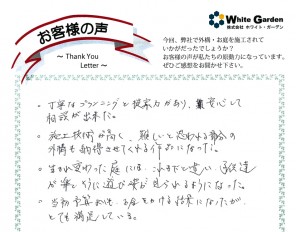 White Garden
株式会社 ホワイト・ガーデン
お客様の声
～ Thank You
Letter ～
今回、弊社で外構・お庭を施工されて
いかがだったでしょうか？
お客様の声が私たちの原動力になっています。
ぜひご感想をお聞かせ下さい。
・丁寧なプランニングと提案力があり、安心して
相談が出来た。
・施工技術が高く、難しいと思われる部分の
外構も納得させてくれる作品になった。
・生まれ変わった庭には、今までと違い、子供達
が楽しそうに遊ぶ姿が見られるようになった。
・当初予算よりも、お金をかける結果になったが、
とても満足している。